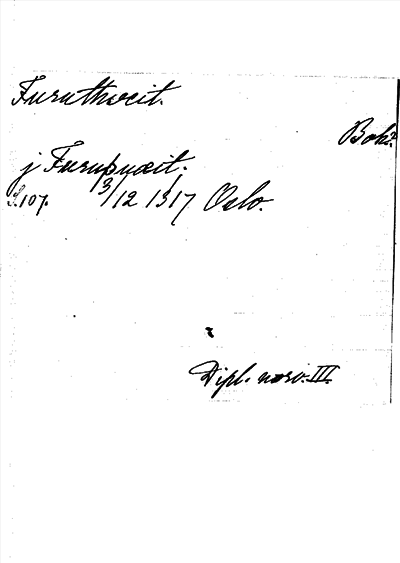 Furuthveit.
Boh?
j Furuþuæit.
S. 107. 13/12 1317 Oslo.
Dipl. norv. III.